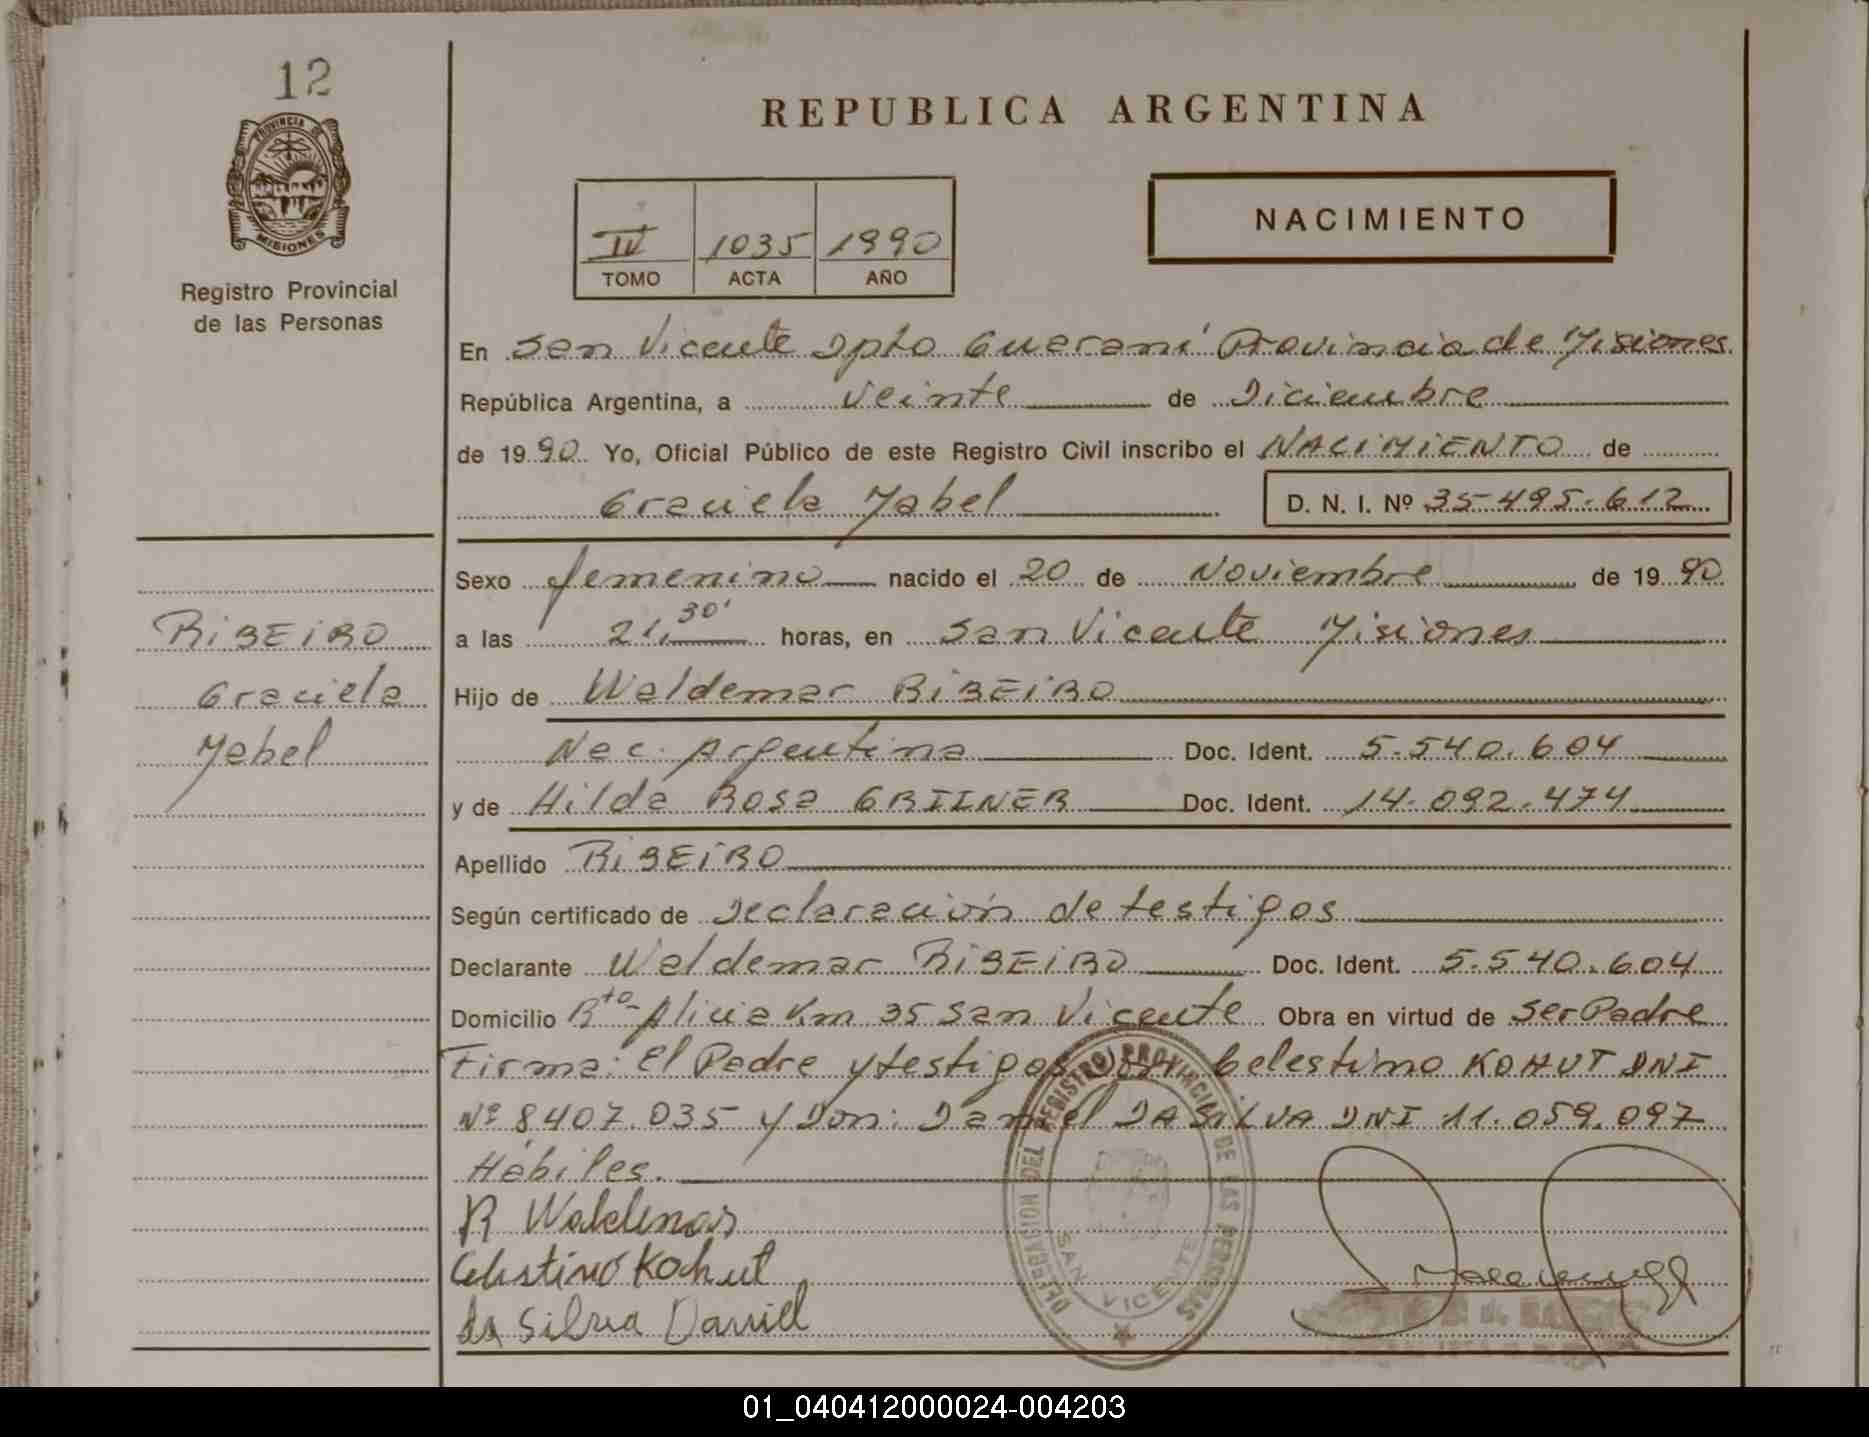 12
PROVINCIA DE
MISIONES
Registro Provincial
de las Personas
REPUBLICA ARGENTINA
IV 1035 1990
TOMO ACTA AÑO
NACIMIENTO
En San Vicente Dpto Guaraní Provincia de Misiones
República Argentina, a veinte de Diciembre
de 1990 Yo, Oficial Público de este Registro Civil inscribo el NACIMIENTO de
Graciela Mabel D. N. I. Nº 35-495-612
Sexo femenino nacido el 20 de Noviembre de 1990
a las 21,30' horas, en San Vicente Misiones
Hijo de Waldemar RIBEIRO
Nac. Argentina Doc. Ident. 5.540.604
y de Hilda Rosa GRIINER Doc. Ident. 14.092.474
Apellido RIBEIRO
Según certificado de Declaración de testigos
Declarante Waldemar RIBEIRO Doc. Ident. 5.540.604
Domicilio Bto- Alicia Km 35 San Vicente Obra en virtud de Ser Padre
Firma: El Padre y testigos Don: Celestino KOHUT DNI
Nº 8407.035 y Don: Daniel DA SILVA DNI 11.059.097
Hábiles.
R Waldemar
Celestino Kohut
da Silva Daniel
RIBEIRO
Graciela
Mabel
DELEGACION DEL REGISTRO PROVINCIAL DE LAS PERSONAS
SAN VICENTE
01_040412000024-004203